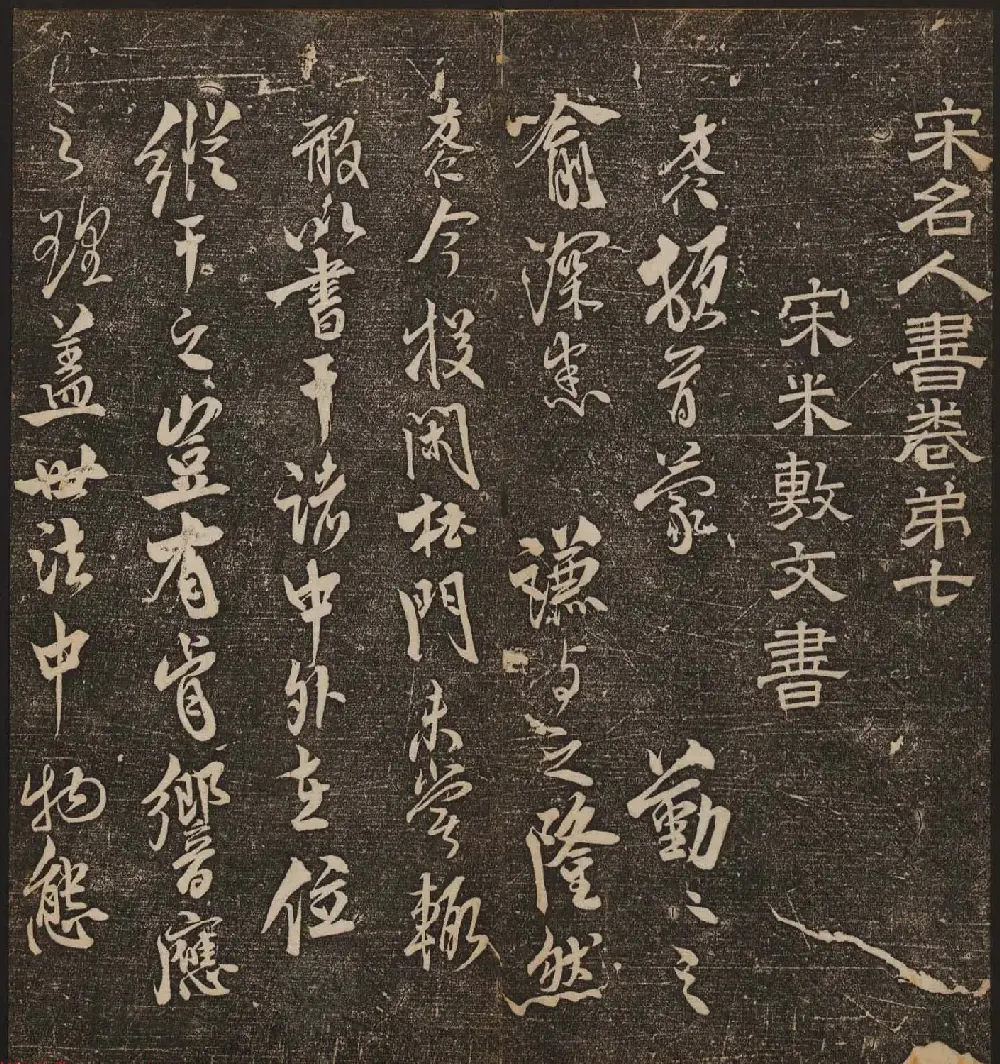 宋名人書卷弟七
宋米敷文書
友仁頓首蒙 勤〻之
喻深悉 謙之隆然
友仁今投閑杜門未嘗輒
敢以書干諸中外在位
縱干之豈有肯響應
之理蓋世法中物態